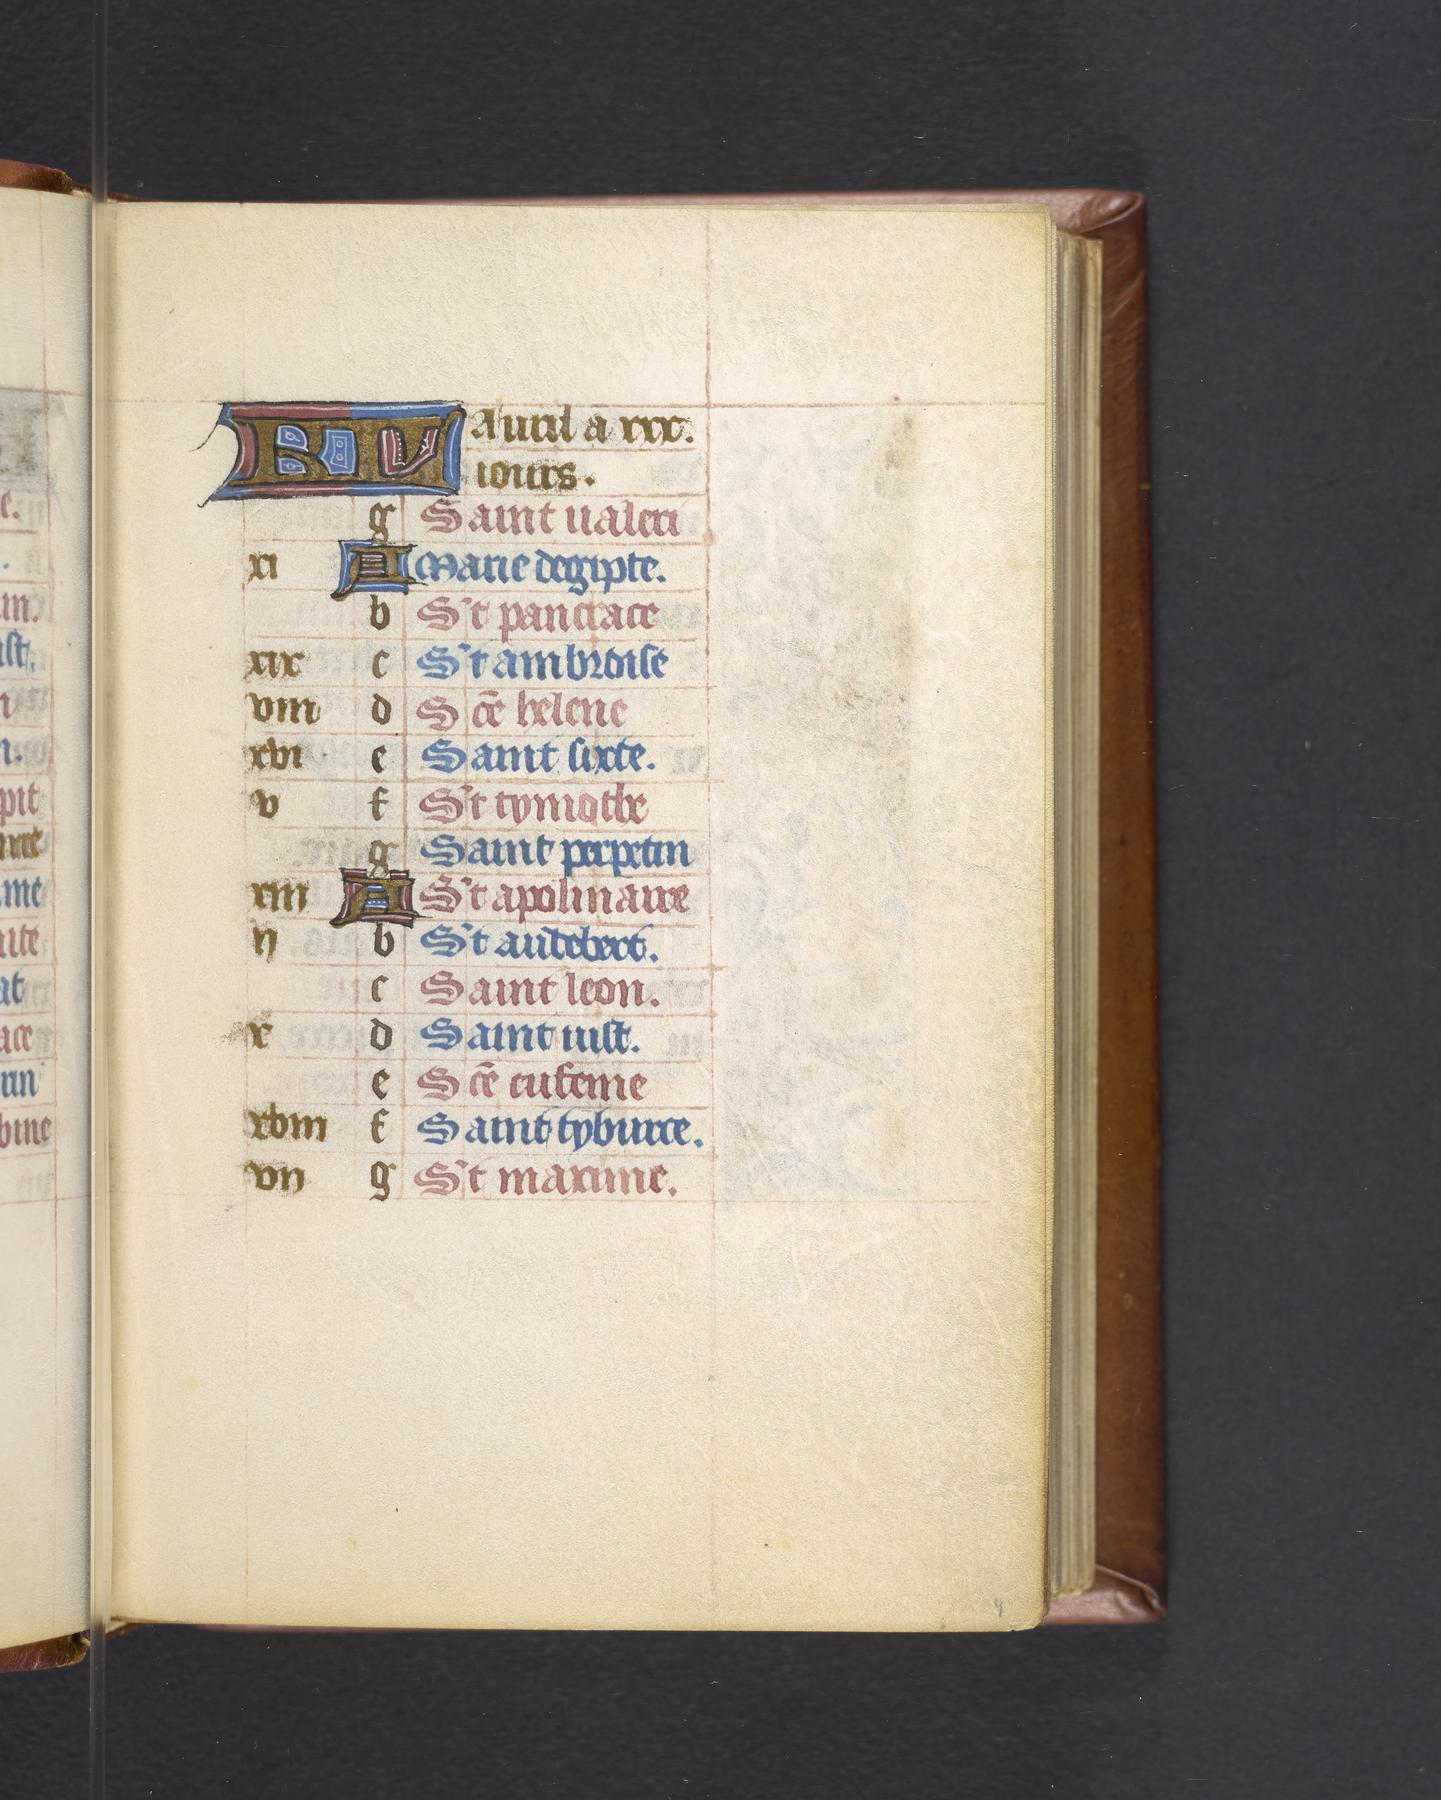 KL Auril a xxx.
iours.
g Saint ualeri
xi A Marie degipte.
b St pancrace
xix c St ambroise
viii d Sce helene
xvi e Saint sixte.
v f St tymothe
g Saint perpetin
xiii A St apolinaire
ii b St audebert.
c Saint leon.
x d Saint iust.
e Sce eufeme
xviii f Saint tyburce.
vii g St maxime.